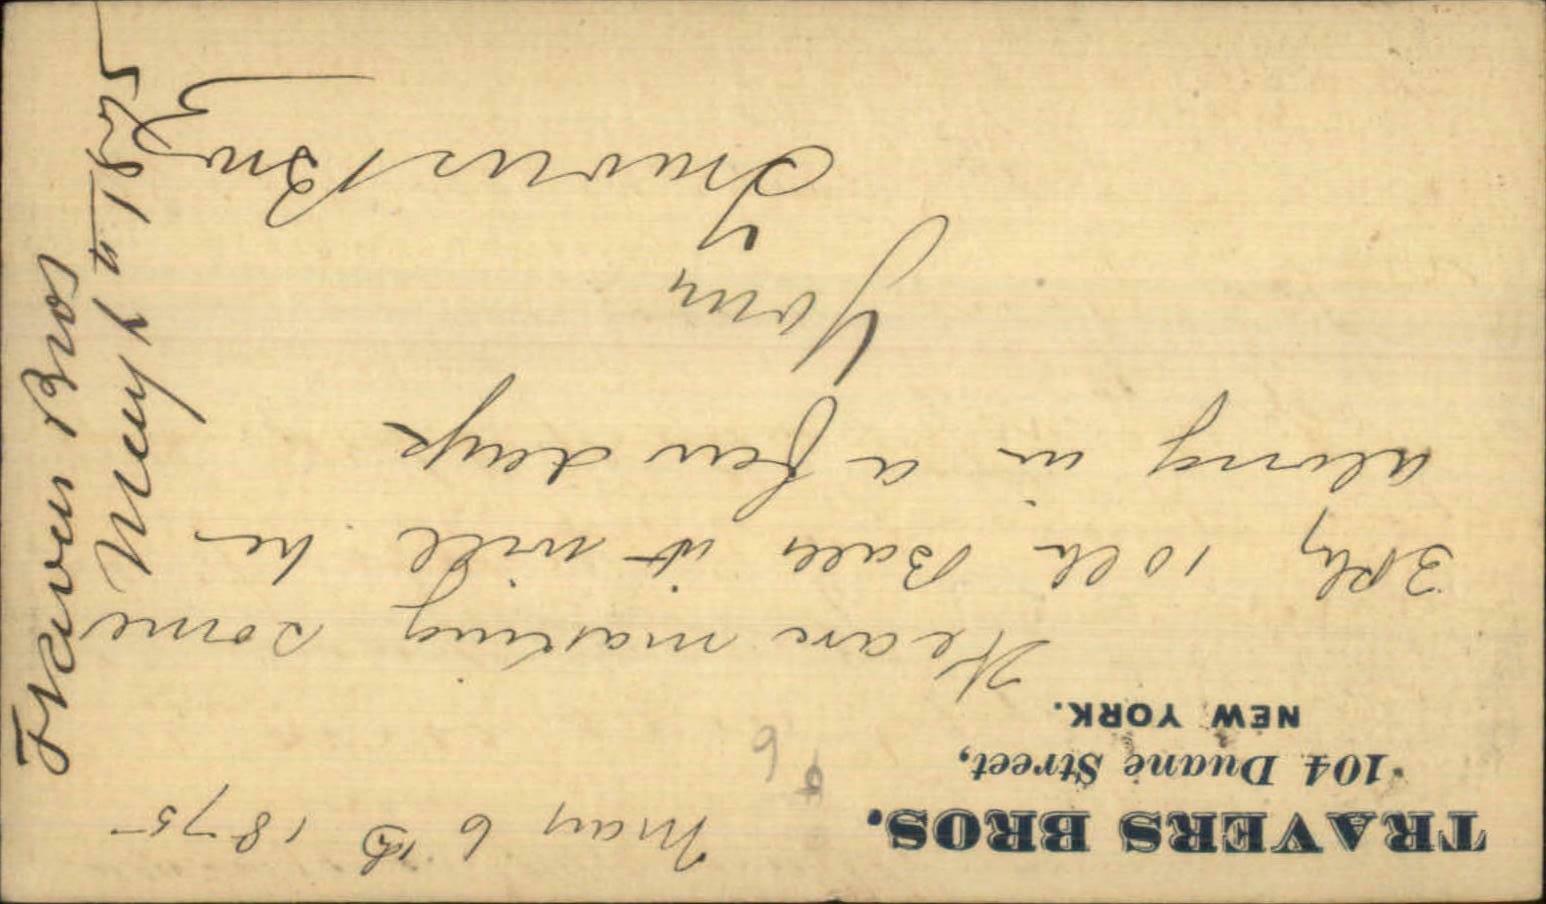 TRAVERS BROS.
104 Duane Street,
NEW YORK.
May 6th 1875
We are making some
3 Ply 10 lb Balls it will be
along in a few days
Yours
Travers Bros
Travers Bros
May 6th 1875